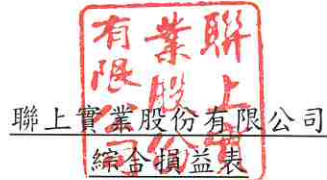 聯上實
業股份
有限公司
聯上實業股份有限公司
綜合損益表